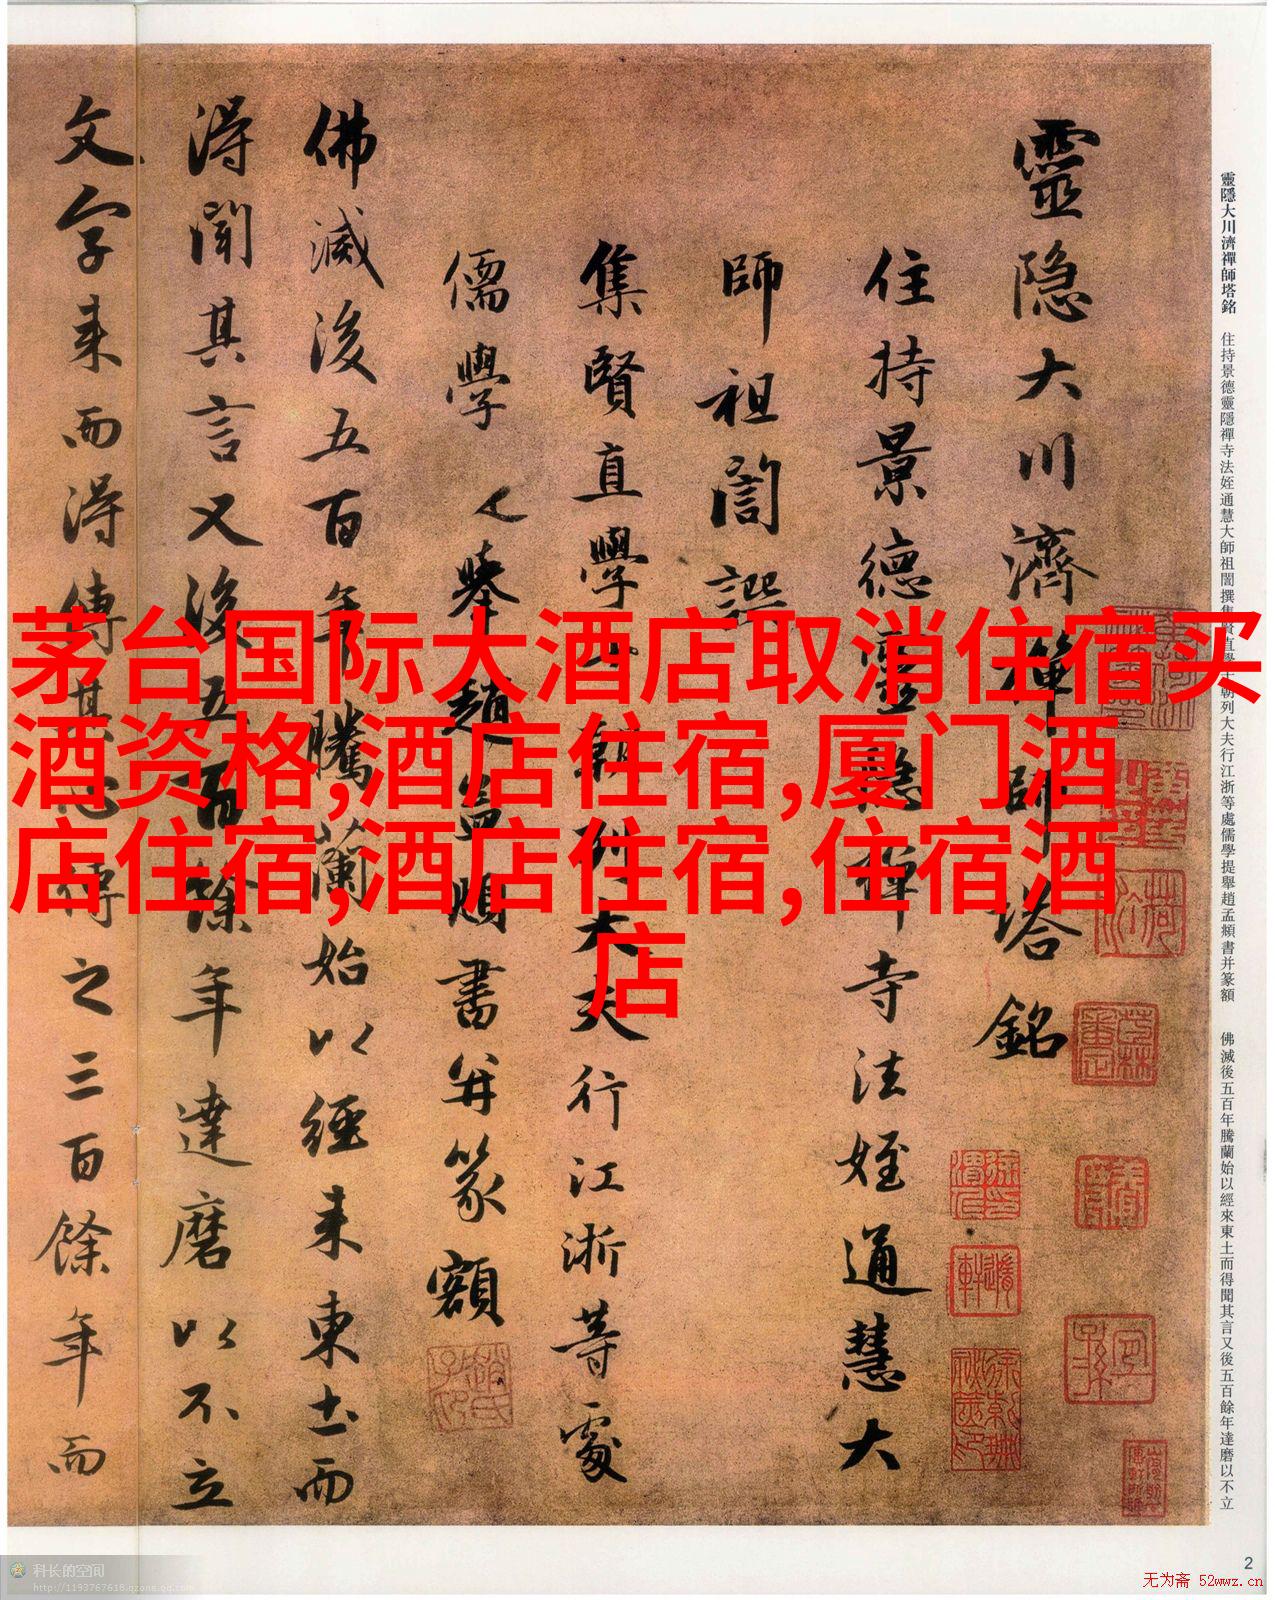 茅台国际大酒店取消住宿买
酒资格,酒店住宿,厦门酒
店住宿,酒店住宿,住宿酒
店
靈隐大川濟禅師塔銘
住持景德靈隐禅寺法姪通慧大
師祖誾譔
集賢直學士朝列大夫行江浙等處
儒學提舉趙孟頫書并篆額
佛滅後五百年騰蘭始以經来東土而
得聞其言又後五百餘年達磨以不立
文字来而得傳其心傳之三百餘年而
靈隱大川濟禪師塔銘 住持景德靈隱禪寺法姪通慧大師祖誾撰集賢直學士朝列大夫行江浙等處儒學提舉趙孟頫書并篆額 佛滅後五百年騰蘭始以經來東土而得聞其言又後五百餘年達磨以不立
2
科长的空间
http://1193767618.qzone.qq.com
无为斋 52wwz.cn